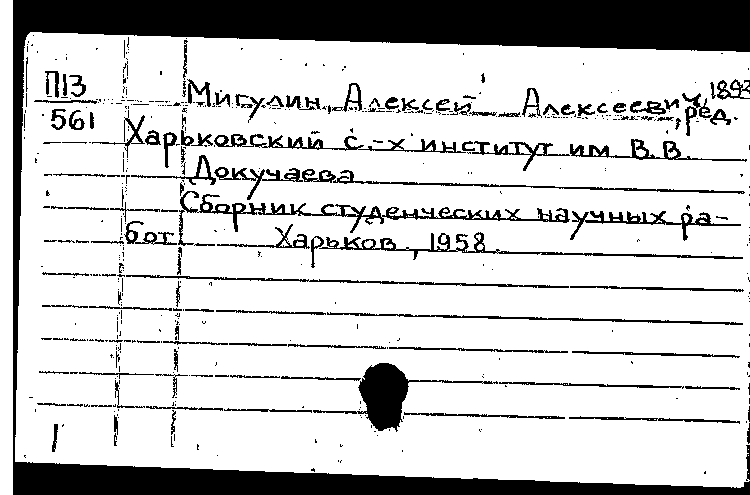 П13
561
Мигулин, Алексей Алексеевич, 1893
, ред.
Харьковский с.-х институт им В.В.
Докучаева
Сборник студенческих научных ра-
бот Харьков, 1958.
1